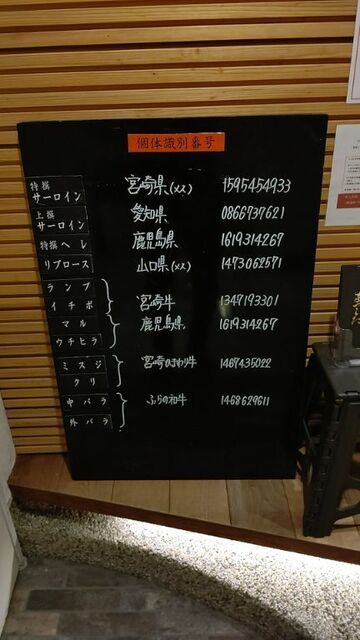 個体識別番号
特撰 サーロイン 宮崎県(メス) 1595454933
上撰 サーロイン 愛知県 0866737621
特撰ヘレ 鹿児島県 1619314267
リブロース 山口県(メス) 1473062571
ランプ
イチボ 宮崎牛 1347193301
マル 鹿児島県 1619314267
ウチヒラ
ミスジ 宮崎のざわり牛 1467435022
クリ
中バラ ふらの和牛 1468629611
外バラ